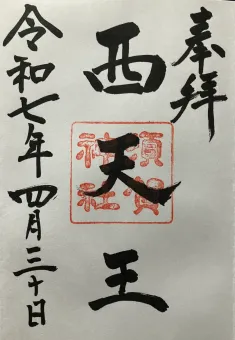 奉拝
西天王
須賀神社
令和七年四月三十日